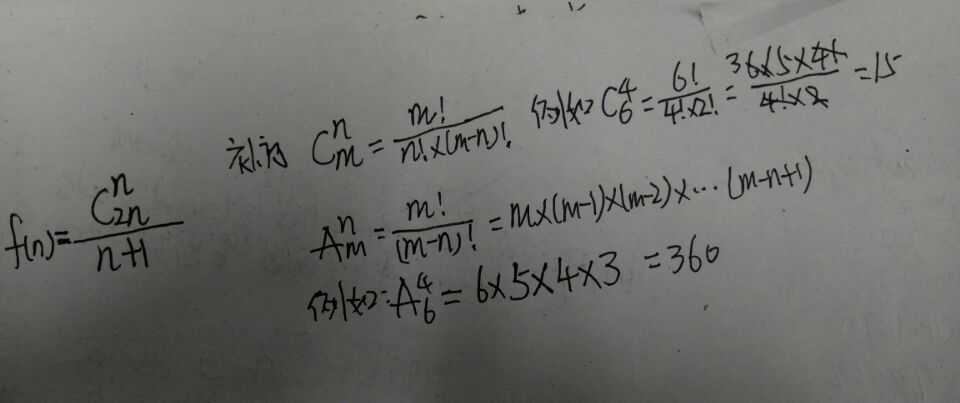 f(n)=C_{2n}^{n}/(n+1)
C_m^n = m!/(n!×(m-n)!) 例如 C_6^4 = 6!/(4!×2!) = 36×5×4!/(4!×2) = 15
A_m^n = m!/(m-n)! = m×(m-1)×(m-2)×…(m-n+1)
例如:A_6^4 = 6×5×4×3 = 360